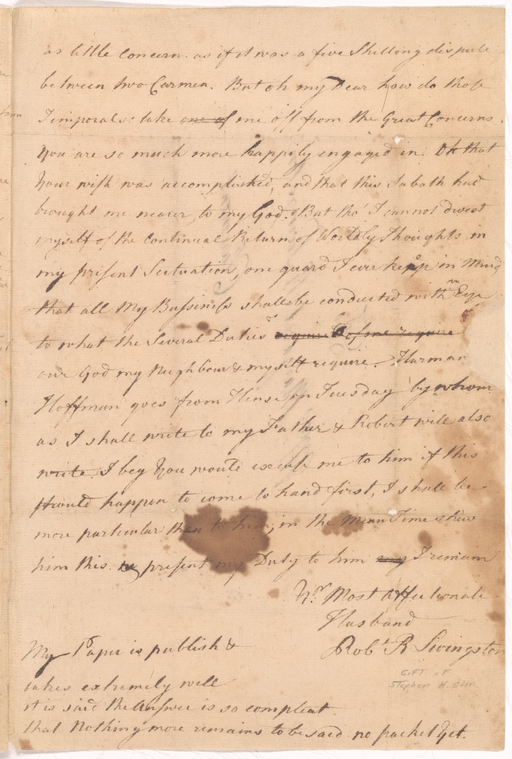 as little concern as if it was a five Shelling dispute
between two Carmen. But oh my Dear how do thos
Temporals take one of me off from the Great Concerns
You are so much more happily engaged in. Oh that
Your wish was accomplished, and that this Sabath had
brought me nearer to my God. But tho I cannot divest
myself of the Continual Return of Worldly Thoughts in
my present Scituation, one guard I ever keep in Mind
that all My Bussiness shall be conducted with an Eye
to what the Several Duties require
God my Neighbour & myself require. Harman
Hoffman goes from Hense on Tuesday by whom
as I shall write to my Father & Robert will also
write. I beg You would excuse me to him if this
should happen to come to hand first, I shall be
more particular then to him; in the Mean Time shew
him this. present my Duty to him I remain
Yr. Most Affectionate
Husband
Robt R Livingston
My Paper is publish &
takes extremely well
it is said the Answer is so compleat
that Nothing more remains to be said no packet Yet.
GIFT OF
Stephen H.